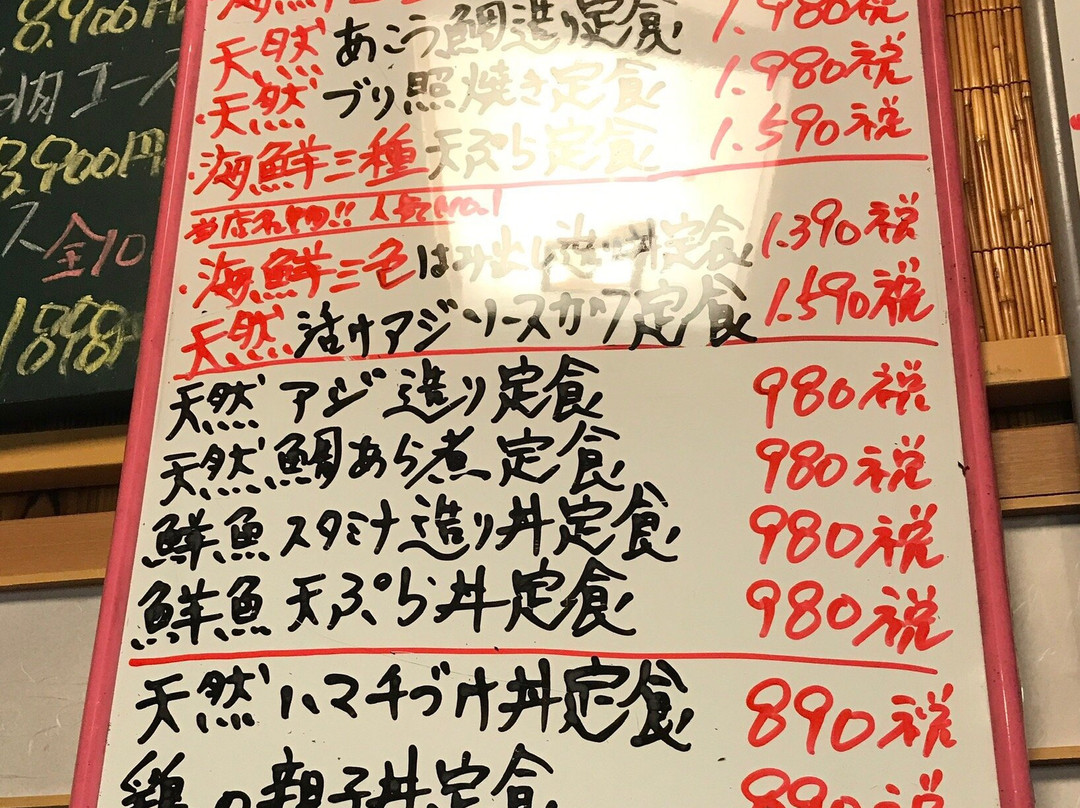 8.900円
肉コース
3.900円
ス 全10
1898
海鮮
天然 あこう鯛造り定食 1.980税
天然 ブリ照焼き定食 1.980税
海鮮三種天ぷら定食 1.590税
当店名物!! 人気No.1
海鮮三色はみ出し造り丼定食 1.390税
天然 活けアジソースカツ定食 1.590税
天然 アジ造り定食 980税
天然鯛あら煮定食 980税
鮮魚スタミナ造り丼定食 980税
鮮魚天ぷら丼定食 980税
天然ハマチづけ丼定食 890税
鶏の親子丼定食 890税